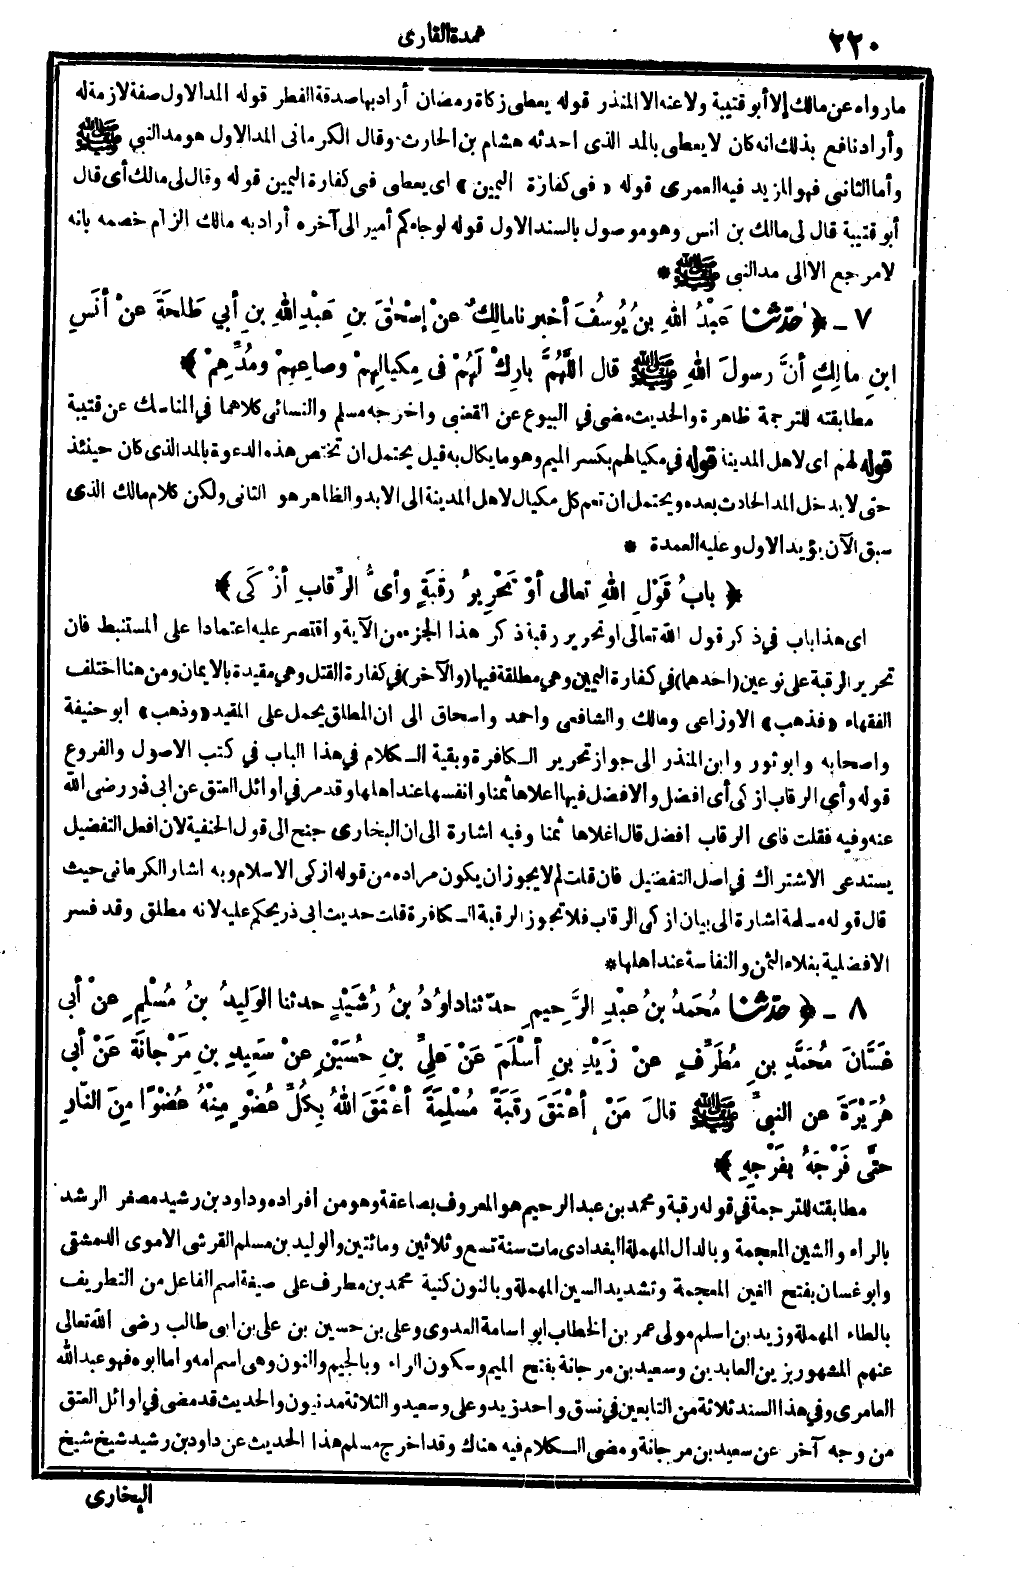 ٢٢٠
عمدة القارى
ما رواه عن مالك إلا أبو قتيبة ولا عنه الا المنذر قوله يعطى زكاة رمضان أراد بها صدقة الفطر قوله المد الاول صفة لازمة له
وأراد نافع بذلك انه كان لا يعطى بالمد الذى احدثه هشام بن الحارث وقال الكرمانى المد الاول هو مد النبى ﷺ
وأما الثانى فهو المزيد فيه العمرى قوله «فى كفارة اليمين» اى يعطى فى كفارة اليمين قوله وقال لى مالك أى قال
أبو قتيبة قال لى مالك بن انس وهو موصول بالسند الاول قوله لو جاءكم أمير الى آخره أراد به مالك الزام خصمه بانه
لا مرجع الا الى مد النبى ﷺ *
٧ - ﴿ حدثنا عَبْدُ اللهِ بنُ يُوسُفَ أخبرنا مالِكٌ عنْ إسْحٰقَ بنِ عَبْدِ اللهِ بنِ أبي طَلحَةَ عنْ أنَسِ
ابنِ مالِكٍ أنَّ رسولَ اللهِ ﷺ قال اللَّهُمَّ بارِكْ لَهُمْ فى مِكيالِهِمْ وصاعِهِمْ ومُدِّهِمْ ﴾
مطابقته للترجمة ظاهرة والحديث مضى في البيوع عن القعنبى واخرجه مسلم والنسائى كلاهما في المناسك عن قتيبة
قوله لهم اى لاهل المدينة قوله في مكيالهم بكسر الميم وهو ما يكال به قيل يحتمل ان تختص هذه الدعوة بالمد الذى كان حينئذ
حتى لا يدخل المد الحادث بعده ويحتمل ان تعم كل مكيال لاهل المدينة الى الابد والظاهر هو الثانى ولكن كلام مالك الذى
سبق الآن يؤيد الاول وعليه العمدة *
﴿ بابُ قَوْلِ اللهِ تعالى أوْ تَحْرِيرُ رقبَةٍ وأىُّ الرِّقابِ أزْكَى ﴾
اى هذا باب في ذكر قول الله تعالى او تحرير رقبة ذكر هذا الجزء من الآية واقتصر عليه اعتمادا على المستنبط فان
تحرير الرقبة على نوعين (احدهما) في كفارة اليمين وهي مطلقة فيها (والآخر) في كفارة القتل وهي مقيدة بالايمان ومن هنا اختلف
الفقهاء «فذهب» الاوزاعى ومالك والشافعى واحمد واسحاق الى ان المطلق يحمل على المقيد «وذهب» ابو حنيفة
واصحابه وابو ثور وابن المنذر الى جواز تحرير الكافرة وبقية الكلام في هذا الباب في كتب الاصول والفروع
قوله وأي الرقاب ازكى أى افضل والافضل فيها اعلاها ثمنا وانفسها عند اهلها وقد مر في اوائل العتق عن ابى ذر رضى الله
عنه وفيه فقلت فاى الرقاب افضل قال اغلاها ثمنا وفيه اشارة الى ان البخارى جنح الى قول الحنفية لان افعل التفضيل
يستدعى الاشتراك في اصل التفضيل فان قلت لم لا يجوز ان يكون مراده من قوله ازكى الاسلام وبه اشار الكرمانى حيث
قال قوله مسلمة اشارة الى بيان ازكى الرقاب فلا تجوز الرقبة الكافرة قلت حديث ابى ذر يحكم عليه لانه مطلق وقد فسر
الافضلية بغلاء الثمن والنفاسة عند اهلها *
٨ - ﴿ حدثنا مُحَمَدُ بنُ عبْدِ الرَّحِيمِ حدّثنا داوُدُ بنُ رُشَيْدٍ حدثنا الوَلِيدُ بنُ مُسْلِمٍ عنْ أبى
غَسَّانَ مُحَمَّدِ بنِ مُطَرِّفٍ عنْ زَيْدِ بنِ أسْلَمَ عَنْ عَلِيِّ بنِ حُسَيْنٍ عنْ سَعِيدِ بنِ مَرْجانَةَ عَنْ أبى
هُرَيْرَةَ عن النبىِّ ﷺ قالَ مَنْ أعْتَقَ رقَبَةً مُسْلِمَةً أعْتَقَ اللهُ بِكُلِّ عُضْوٍ مِنْهُ عُضْوًا مِنَ النّارِ
حتَّى فَرْجَهُ بِفَرْجِهِ ﴾
مطابقته للترجمة في قوله رقبة ومحمد بن عبد الرحيم هو المعروف بصاعقة وهو من افراده وداود بن رشيد مصغر الرشد
بالراء والشين المعجمة وبالدال المهملة البغدادى مات سنة تسع وثلاثين ومائتين والوليد بن مسلم القرشى الاموى الدمشقى
وابو غسان بفتح الغين المعجمة وتشديد السين المهملة وبالنون كنية محمد بن مطرف على صيغة اسم الفاعل من التطريف
بالطاء المهملة وزيد بن اسلم مولى عمر بن الخطاب ابو اسامة العدوى وعلى بن حسين بن على بن ابى طالب رضى الله تعالى
عنهم المشهور بزين العابدين وسعيد بن مرجانة بفتح الميم وسكون الراء وبالجيم والنون وهى اسم امه واما ابوه فهو عبد الله
العامرى وفي هذا السند ثلاثة من التابعين في نسق واحد زيد وعلى وسعيد والثلاثة مدنيون والحديث قد مضى في اوائل العتق
من وجه آخر عن سعيد بن مرجانة ومضى الكلام فيه هناك وقد اخرج مسلم هذا الحديث عن داود بن رشيد شيخ شيخ
البخارى